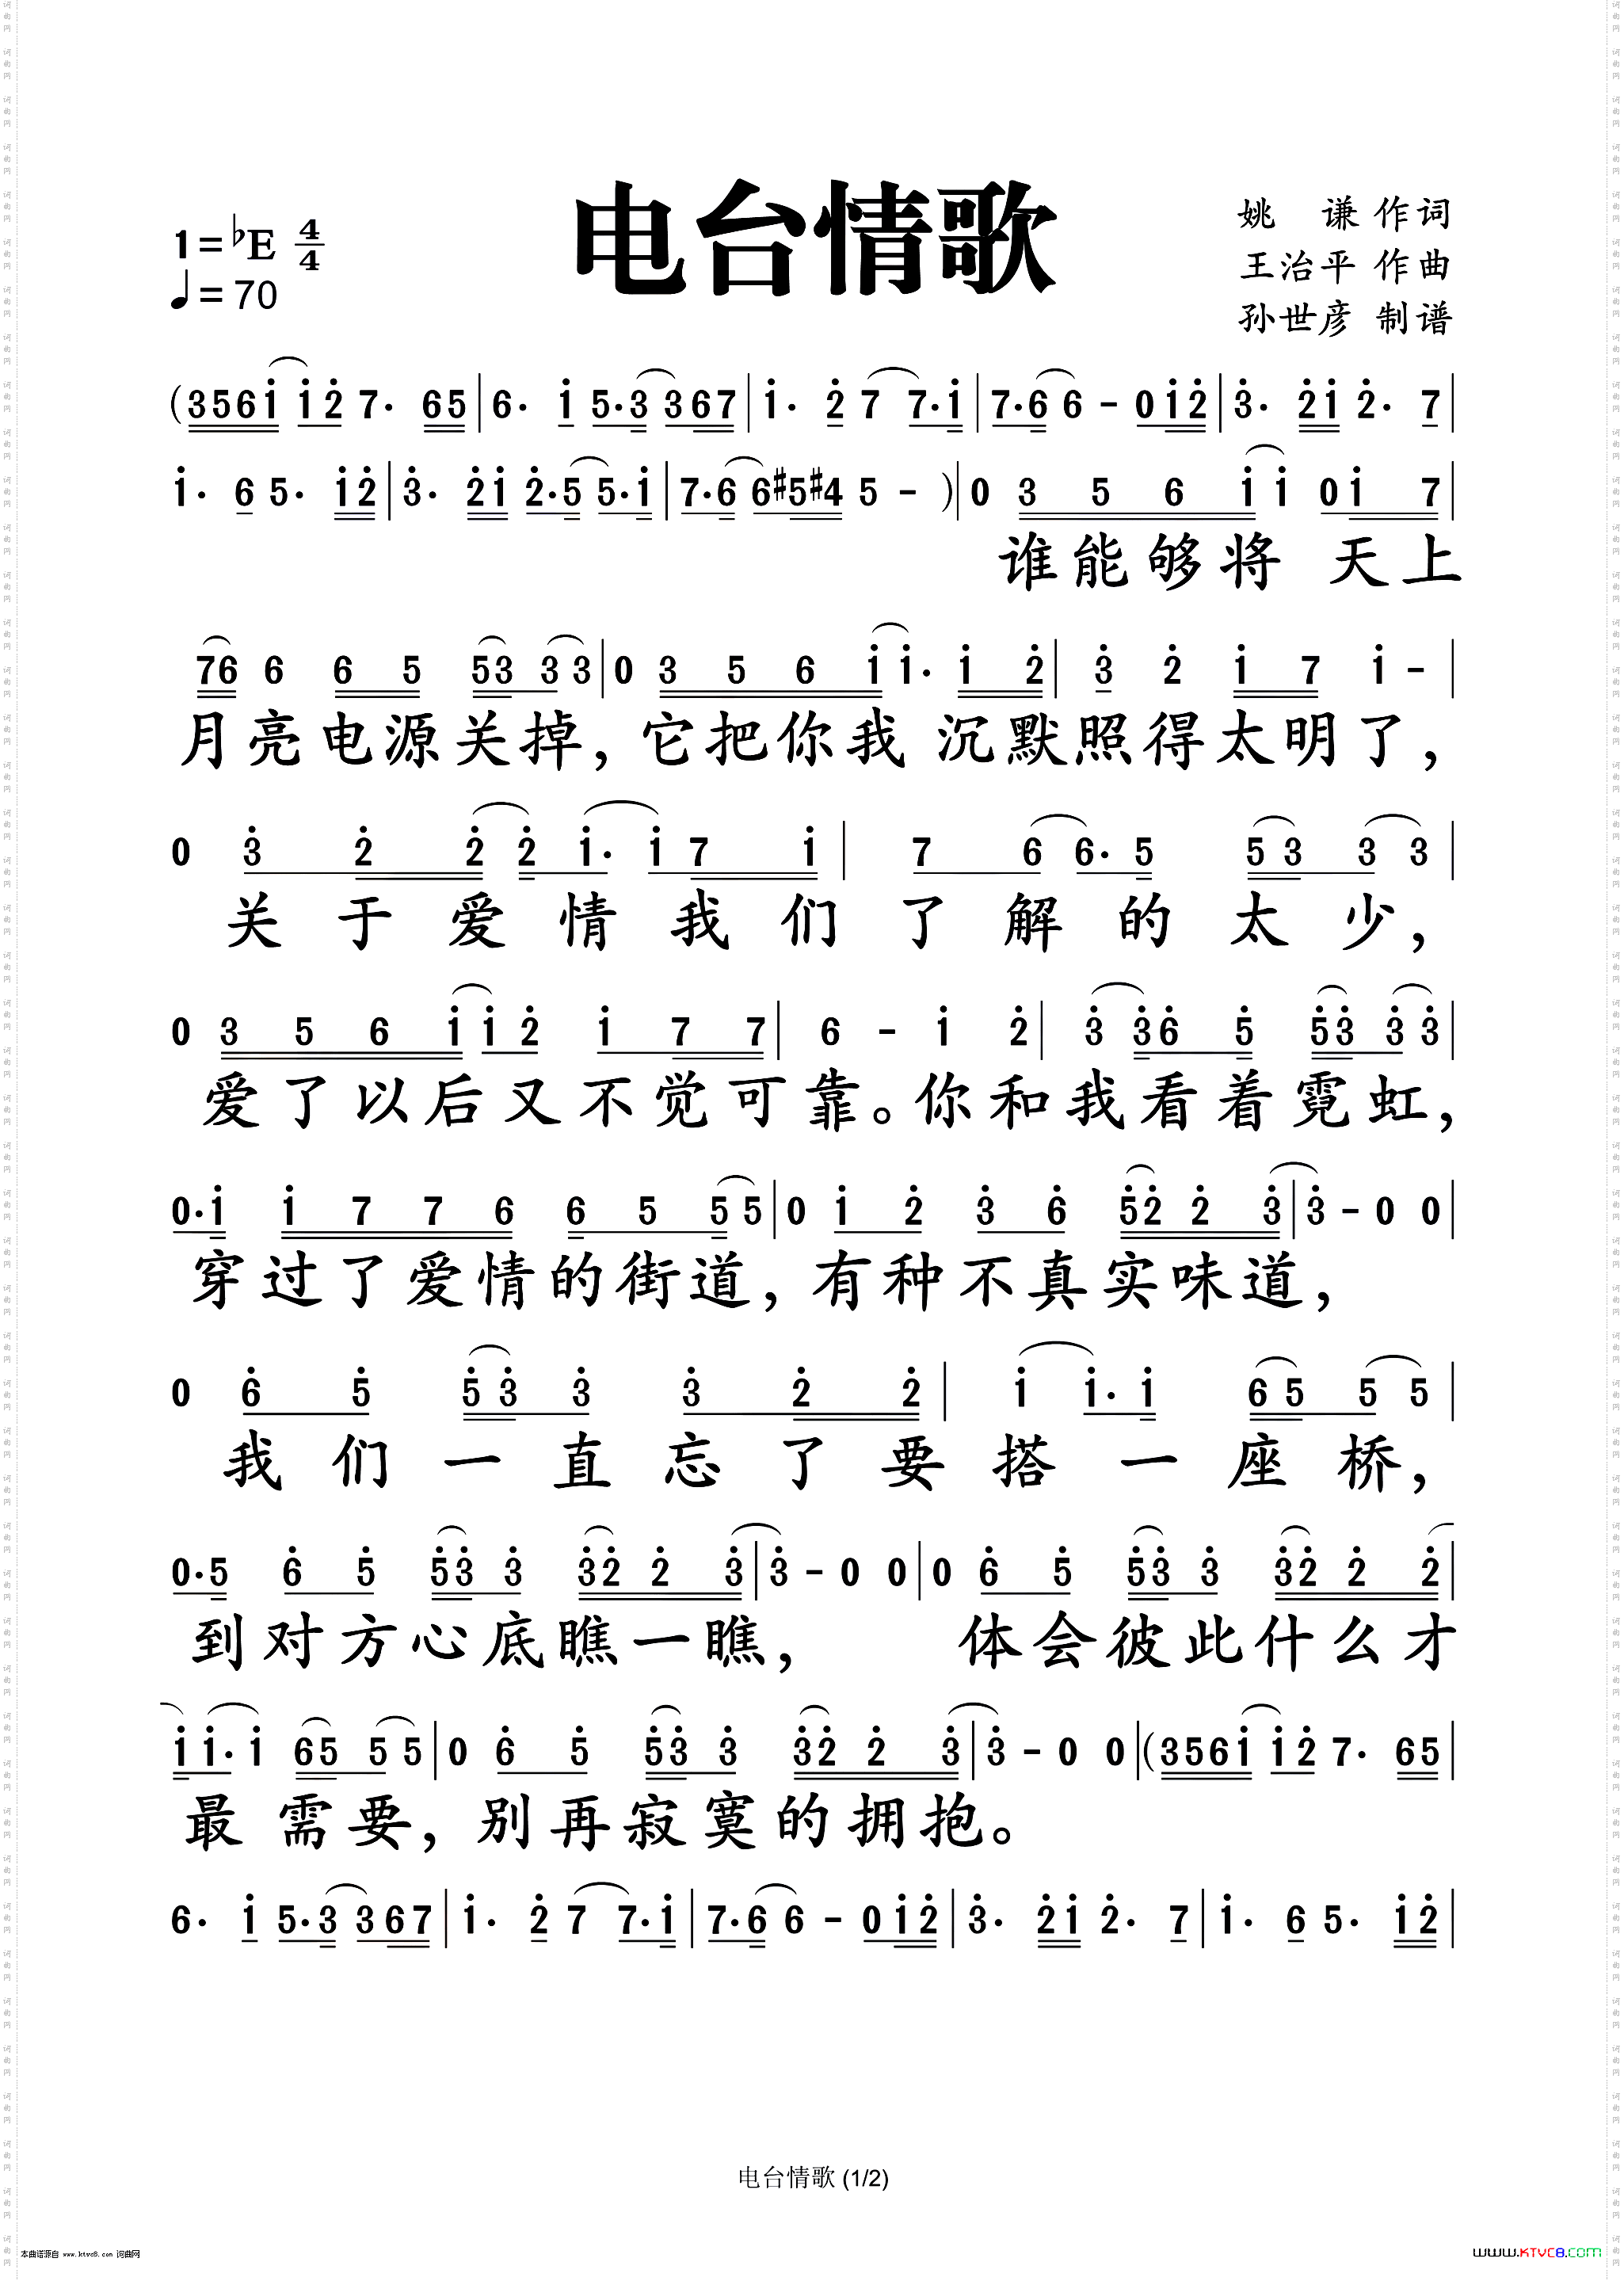 电台情歌
1=♭E 4/4
♩=70
姚 谦 作词
王治平 作曲
孙世彦 制谱
(3561̇ 1̇2̇ 7· 65|6· 1̇ 5·3 367|1̇· 2̇ 7 7·1̇|7·6 6 - 01̇2̇|3̇· 2̇1̇ 2̇· 7|
1̇· 6 5· 1̇2̇|3̇· 2̇1̇ 2̇·5 5·1̇|7·6 6#5#4 5 - )|0 3 5 6 1̇ 1̇ 01̇ 7|
谁能够将 天上
76 6 6 5 53 3 3|0 3 5 6 1̇ 1̇· 1̇ 2̇|3̇ 2̇ 1̇ 7 1̇ - |
月亮电源关掉,它把你我 沉默照得太明了,
0 3̇ 2̇ 2̇ 2̇ 1̇· 1̇ 7 1̇|7 6 6· 5 5 3 3 3|
关于爱情我们了解的太少,
0 3 5 6 1̇ 1̇ 2̇ 1̇ 7 7|6 - 1̇ 2̇|3̇ 3̇6̇ 5̇ 5̇3̇ 3̇ 3̇|
爱了以后又不觉可靠。你和我看着霓虹,
0·1̇ 1̇ 7 7 6 6 5 5 5|0 1̇ 2̇ 3̇ 6̇ 5̇2̇ 2̇ 3̇|3̇ - 0 0|
穿过了爱情的街道,有种不真实味道,
0 6̇ 5̇ 5̇ 3̇ 3̇ 3̇ 2̇ 2̇|1̇ 1̇· 1̇ 6 5 5 5|
我们一直忘了要搭一座桥,
0·5 6̇ 5̇ 5̇3̇ 3̇ 3̇2̇ 2̇ 3̇|3̇ - 0 0|0 6̇ 5̇ 5̇3̇ 3̇ 3̇2̇ 2̇ 2̇|
到对方心底瞧一瞧, 体会彼此什么才
1̇ 1̇· 1̇ 65 5 5|0 6̇ 5̇ 5̇3̇ 3̇ 3̇2̇ 2̇ 3̇|3̇ - 0 0|(3561̇ 1̇2̇ 7· 65|
最 需要,别再寂寞的拥抱。
6· 1̇ 5·3 367|1̇· 2̇ 7 7·1̇|7·6 6 - 01̇2̇|3̇· 2̇1̇ 2̇· 7|1̇· 6 5· 1̇2̇|
电台情歌 (1/2)
本曲谱源自 www.ktvc8.com 词曲网
www.KTVC8.com